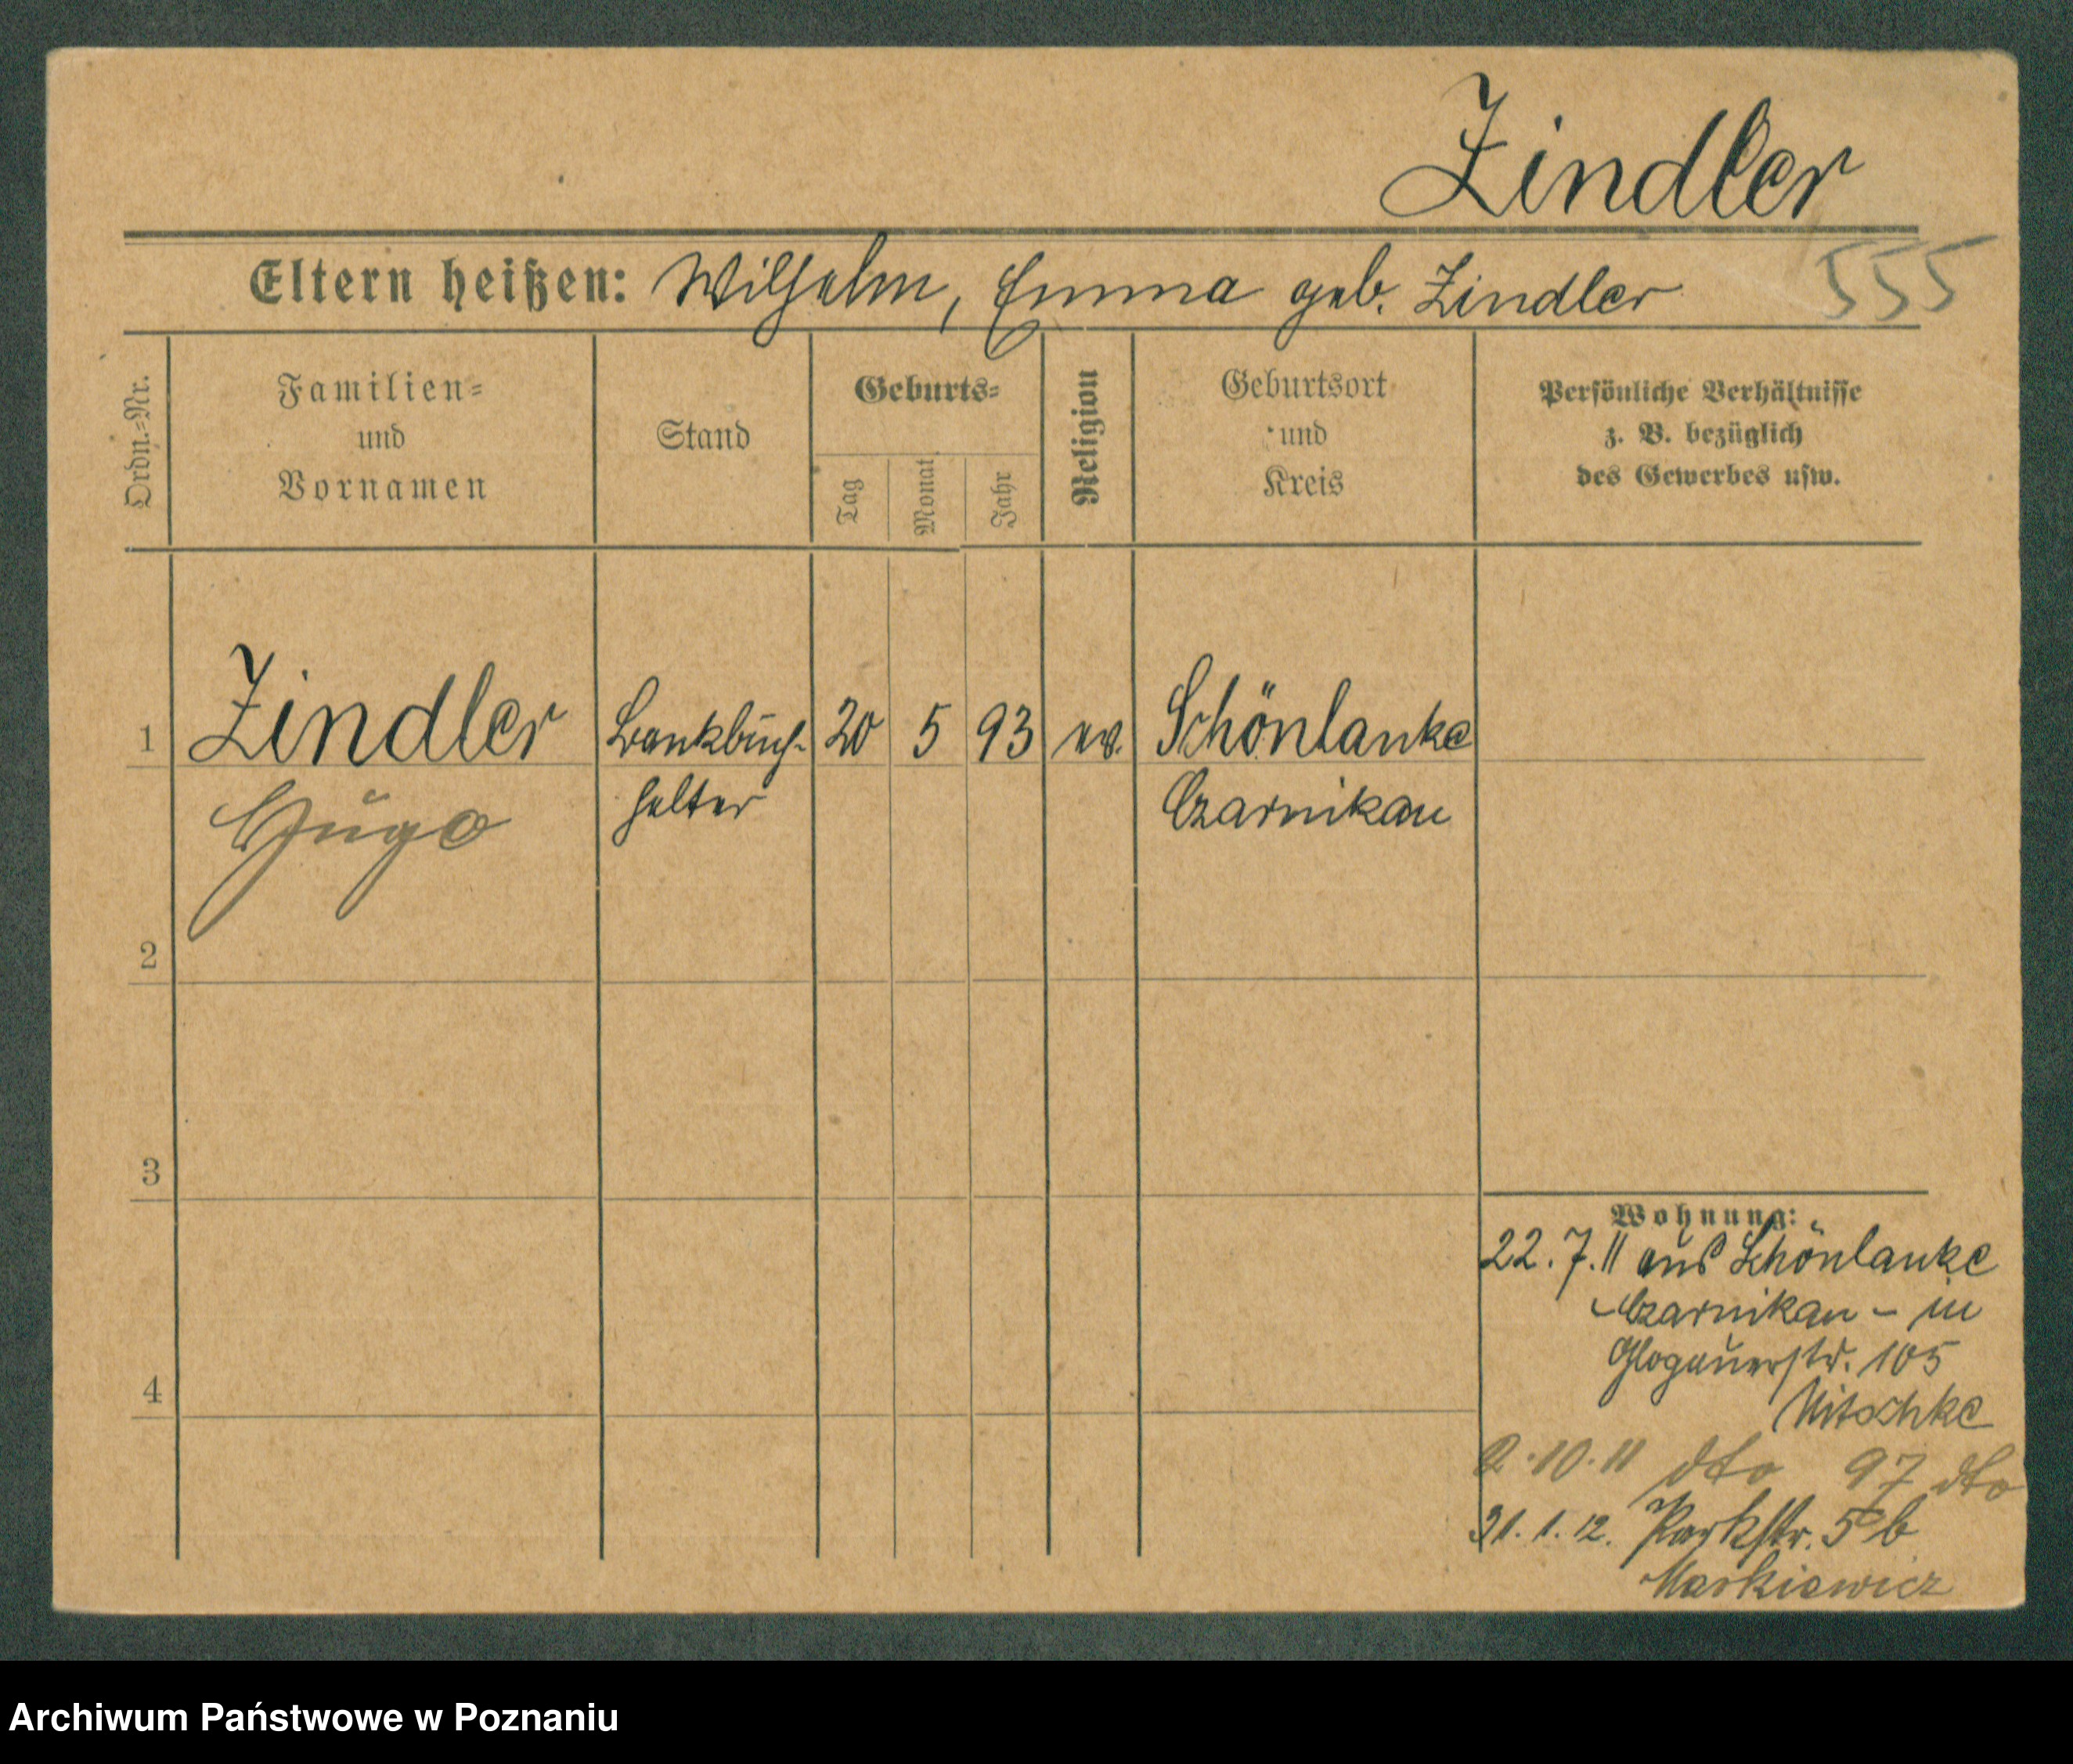 Zindler
Eltern heißen: Wilhelm, Emma geb. Zindler 555
Ordn.=Nr.
Familien=
und
Vornamen
Stand
Geburts=
Tag
Monat
Jahr
Religion
Geburtsort
und
Kreis
Persönliche Verhältnisse
z. B. bezüglich
des Gewerbes usw.
1 Zindler Bankbuch- 20 5 93 ev. Schönlanke
Hugo halter Czarnikau
2
3
4
Wohnung:
22.7.11 aus Schönlanke
Czarnikau - in
Glogauerstr. 105
Nitschke
2.10.11 dto 97 dto
31.1.12. Parkstr. 5b
Markiewicz
Archiwum Państwowe w Poznaniu